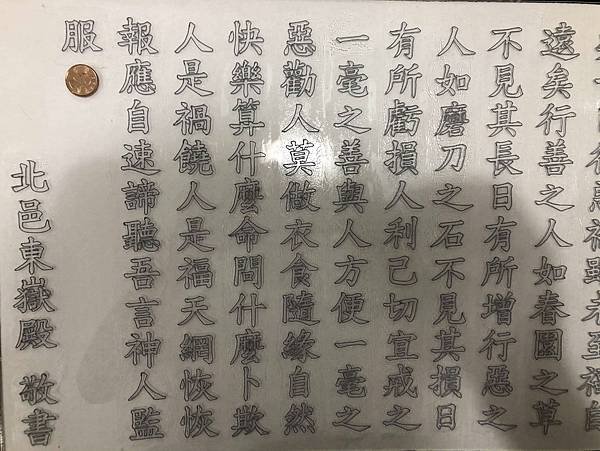 行惡禍雖未至福自
遠矣行善之人如春園之草
不見其長日有所增行惡之
人如磨刀之石不見其損日
有所虧損人利己切宜戒之
一毫之善與人方便一毫之
惡勸人莫做衣食隨緣自然
快樂算什麼命問什麼卜欺
人是禍饒人是福天網恢恢
報應自速諦聽吾言神人監
服
北邑東嶽殿 敬書